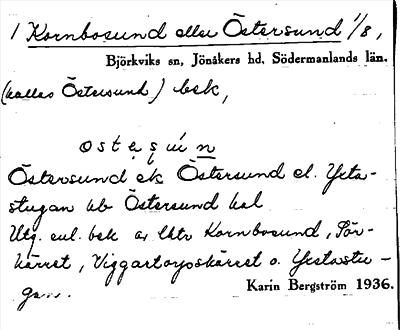 1 Kornbosund eller Östersund 1/8,
Björkviks sn, Jönåkers hd, Södermanlands län.
(kallas Östersund) bek,
ostęşu̇n
Östersund ek Östersund el. Ycta-
stugan hb Östersund hal
Utg. eul. bek av lht Kornbosund,
kärret, Viggartorpskärret o. Yctastu-
gan.
Karin Bergström 1936.